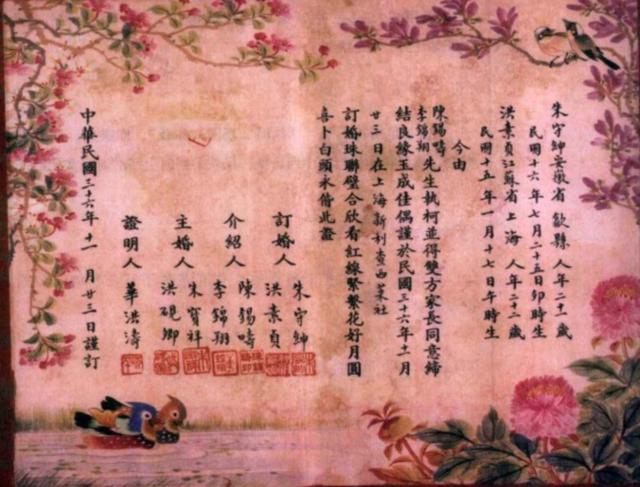 朱守紳安徽省歙縣人年二十一歲
民國十六年七月二十五日卯時生
洪素貞江蘇省上海人年二十二歲
民國十五年一月十七日午時生
今由
陳錫疇
李錦翔先生執柯並得雙方家長同意締
結良緣玉成佳偶謹於民國三十六年十一月
廿三日在上海新利查西菜社
訂婚珠聯璧合欣看紅線緊繫花好月圓
喜卜白頭永偕此證
訂婚人 朱守紳
洪素貞
介紹人 陳錫疇
李錦翔
主婚人 朱寶祥
洪硯卿
證明人 華洪濤
中華民國三十六年十一月廿三日謹訂